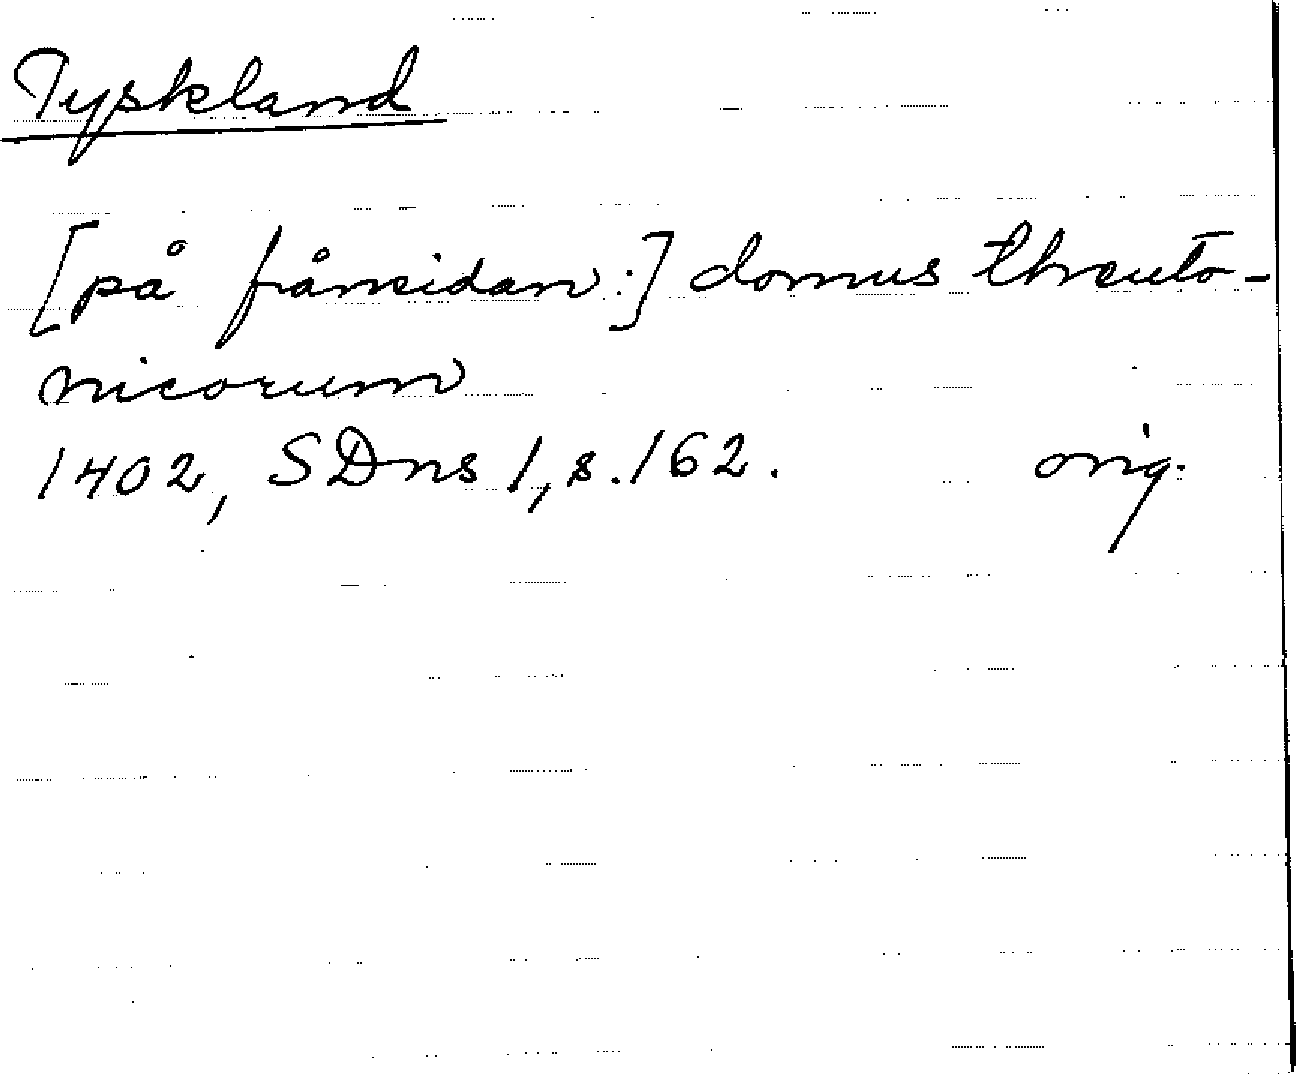 Tyskland
[på frånsidan:] domus theuto-
nicorum
1402, SDns 1, s. 162. orig.